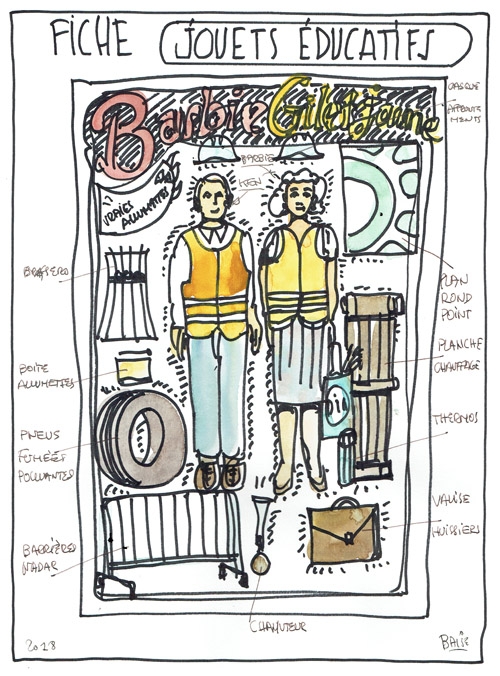 FICHE JOUETS ÉDUCATIFS
Barbie Gilet jaune
CASQUE
AFFRONTE
MENTS
BARBIE
KEN
VRAIES
ALLUMETTES
BRASERO
PLAN
ROND
POINT
PLANCHE
CHAUFFAGE
BOITE
ALLUMETTES
THERMOS
PNEUS
FUMÉES
POLLUANTES
VALISE
HUISSIERS
BARRIÈRES
NADAR
CHAHUTEUR
2018
BALIS